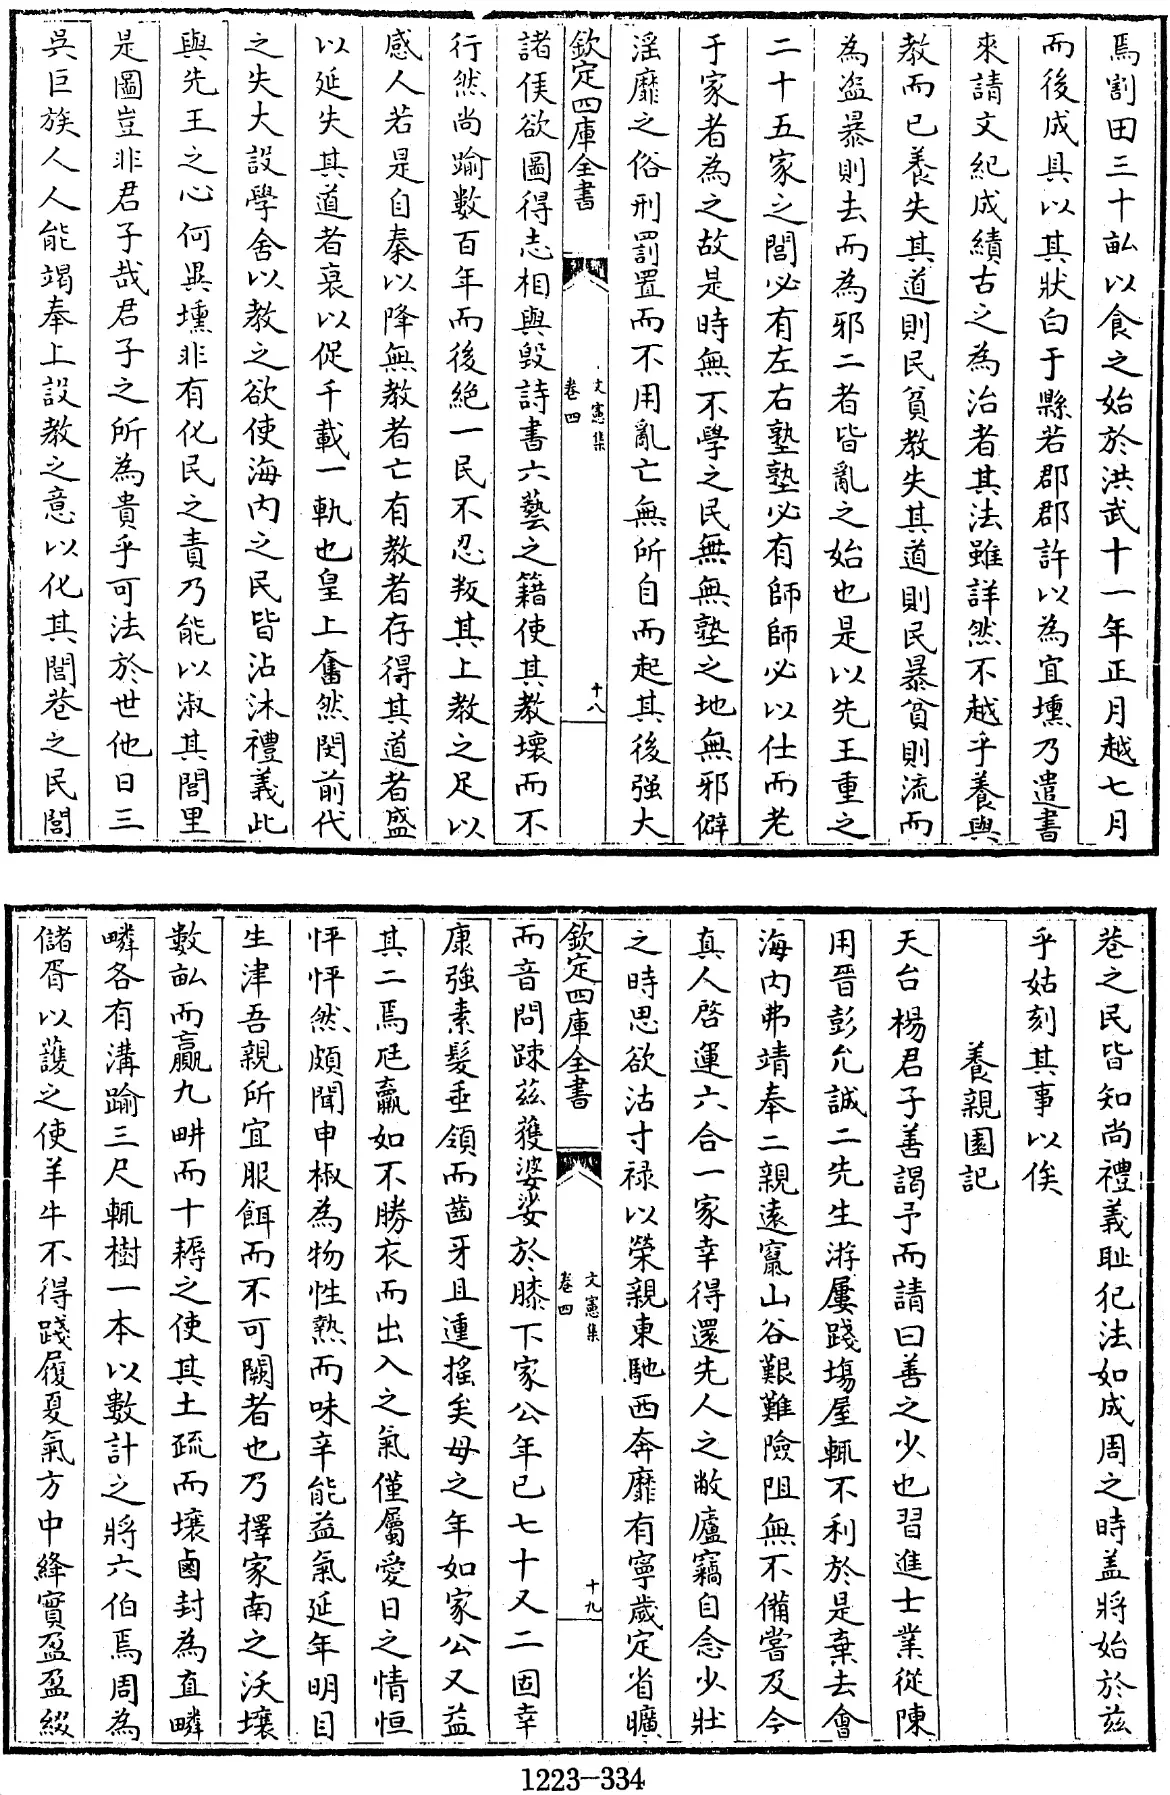 焉割田三十畝以食之始於洪武十一年正月越七月
而後成具以其狀白于縣若郡郡許以為宜壎乃遣書
來請文紀成績古之為治者其法雖詳然不越乎養與
教而已養失其道則民貧教失其道則民暴貧則流而
為盜暴則去而為邪二者皆亂之始也是以先王重之
二十五家之閭必有左右塾塾必有師師必以仕而老
于家者為之故是時無不學之民無無塾之地無邪僻
淫靡之俗刑罰置而不用亂亡無所自而起其後强大
欽定四庫全書
文憲集
卷四
十八
諸侯欲圖得志相與毀詩書六藝之籍使其教壞而不
行然尚踰數百年而後絶一民不忍叛其上教之足以
感人若是自秦以降無教者亡有教者存得其道者盛
以延失其道者衰以促千載一軌也皇上奮然閔前代
之失大設學舍以教之欲使海内之民皆沾沐禮義此
與先王之心何異壎非有化民之責乃能以淑其閭里
是圖豈非君子哉君子之所為貴乎可法於世他日三
吳巨族人人能竭奉上設教之意以化其閭巷之民閭
巷之民皆知尚禮義恥犯法如成周之時盖將始於兹
乎姑刻其事以俟
養親園記
天台楊君子善謁予而請曰善之少也習進士業從陳
用晉彭允誠二先生游屢踐塲屋輒不利於是棄去會
海内弗靖奉二親遠竄山谷艱難險阻無不備嘗及今
真人啓運六合一家幸得還先人之敝廬竊自念少壯
之時思欲沽寸禄以榮親東馳西奔靡有寧歲定省曠
欽定四庫全書
文憲集
卷四
十九
而音問踈兹獲婆娑於膝下家公年已七十又二固幸
康強素髮垂領而齒牙且連搖矣母之年如家公又益
其二焉尫羸如不勝衣而出入之氣僅屬愛日之情恒
怦怦然頗聞申椒為物性熟而味辛能益氣延年明目
生津吾親所宜服餌而不可闕者也乃擇家南之沃壤
數畝而贏九畊而十耨之使其土疏而壤鹵封為直疄
疄各有溝踰三尺輒樹一本以數計之將六伯焉周為
儲胥以護之使羊牛不得踐履夏氣方中絳實盈盈綴
1223-334